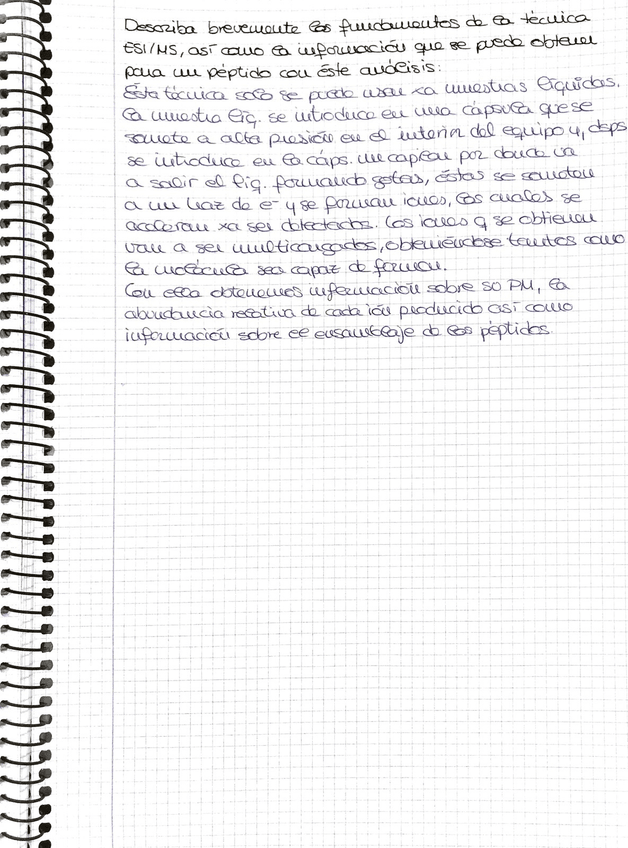 Describa brevemente los fundamentos de la técnica
ESI/MS, así como la información que se puede obtener
para un péptido con éste análisis:
Ésta técnica solo se puede usar xa muestras líquidas.
La muestra líq. se introduce en una cápsula que se
somete a alta presión en el interior del equipo y, dsps
se introduce en la cáps. un capilar por donde va
a salir el líq. formando gotas, éstas se someten
a un haz de e- y se forman iones, los cuales se
aceleran xa ser detectados. Los iones q se obtienen
van a ser multicargados, obteniéndose tantos como
la molécula sea capaz de formar.
Con ello obtenemos información sobre su PM, la
abundancia relativa de cada ión producido así como
información sobre el ensamblaje de los péptidos.